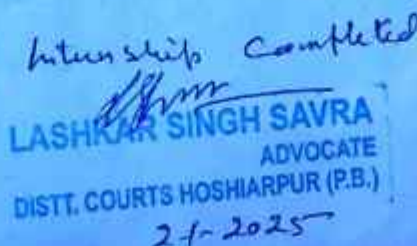 Internship Completed
LASHKAR SINGH SAVRA
ADVOCATE
DISTT. COURTS HOSHIARPUR (P.B.)
2-1-2025